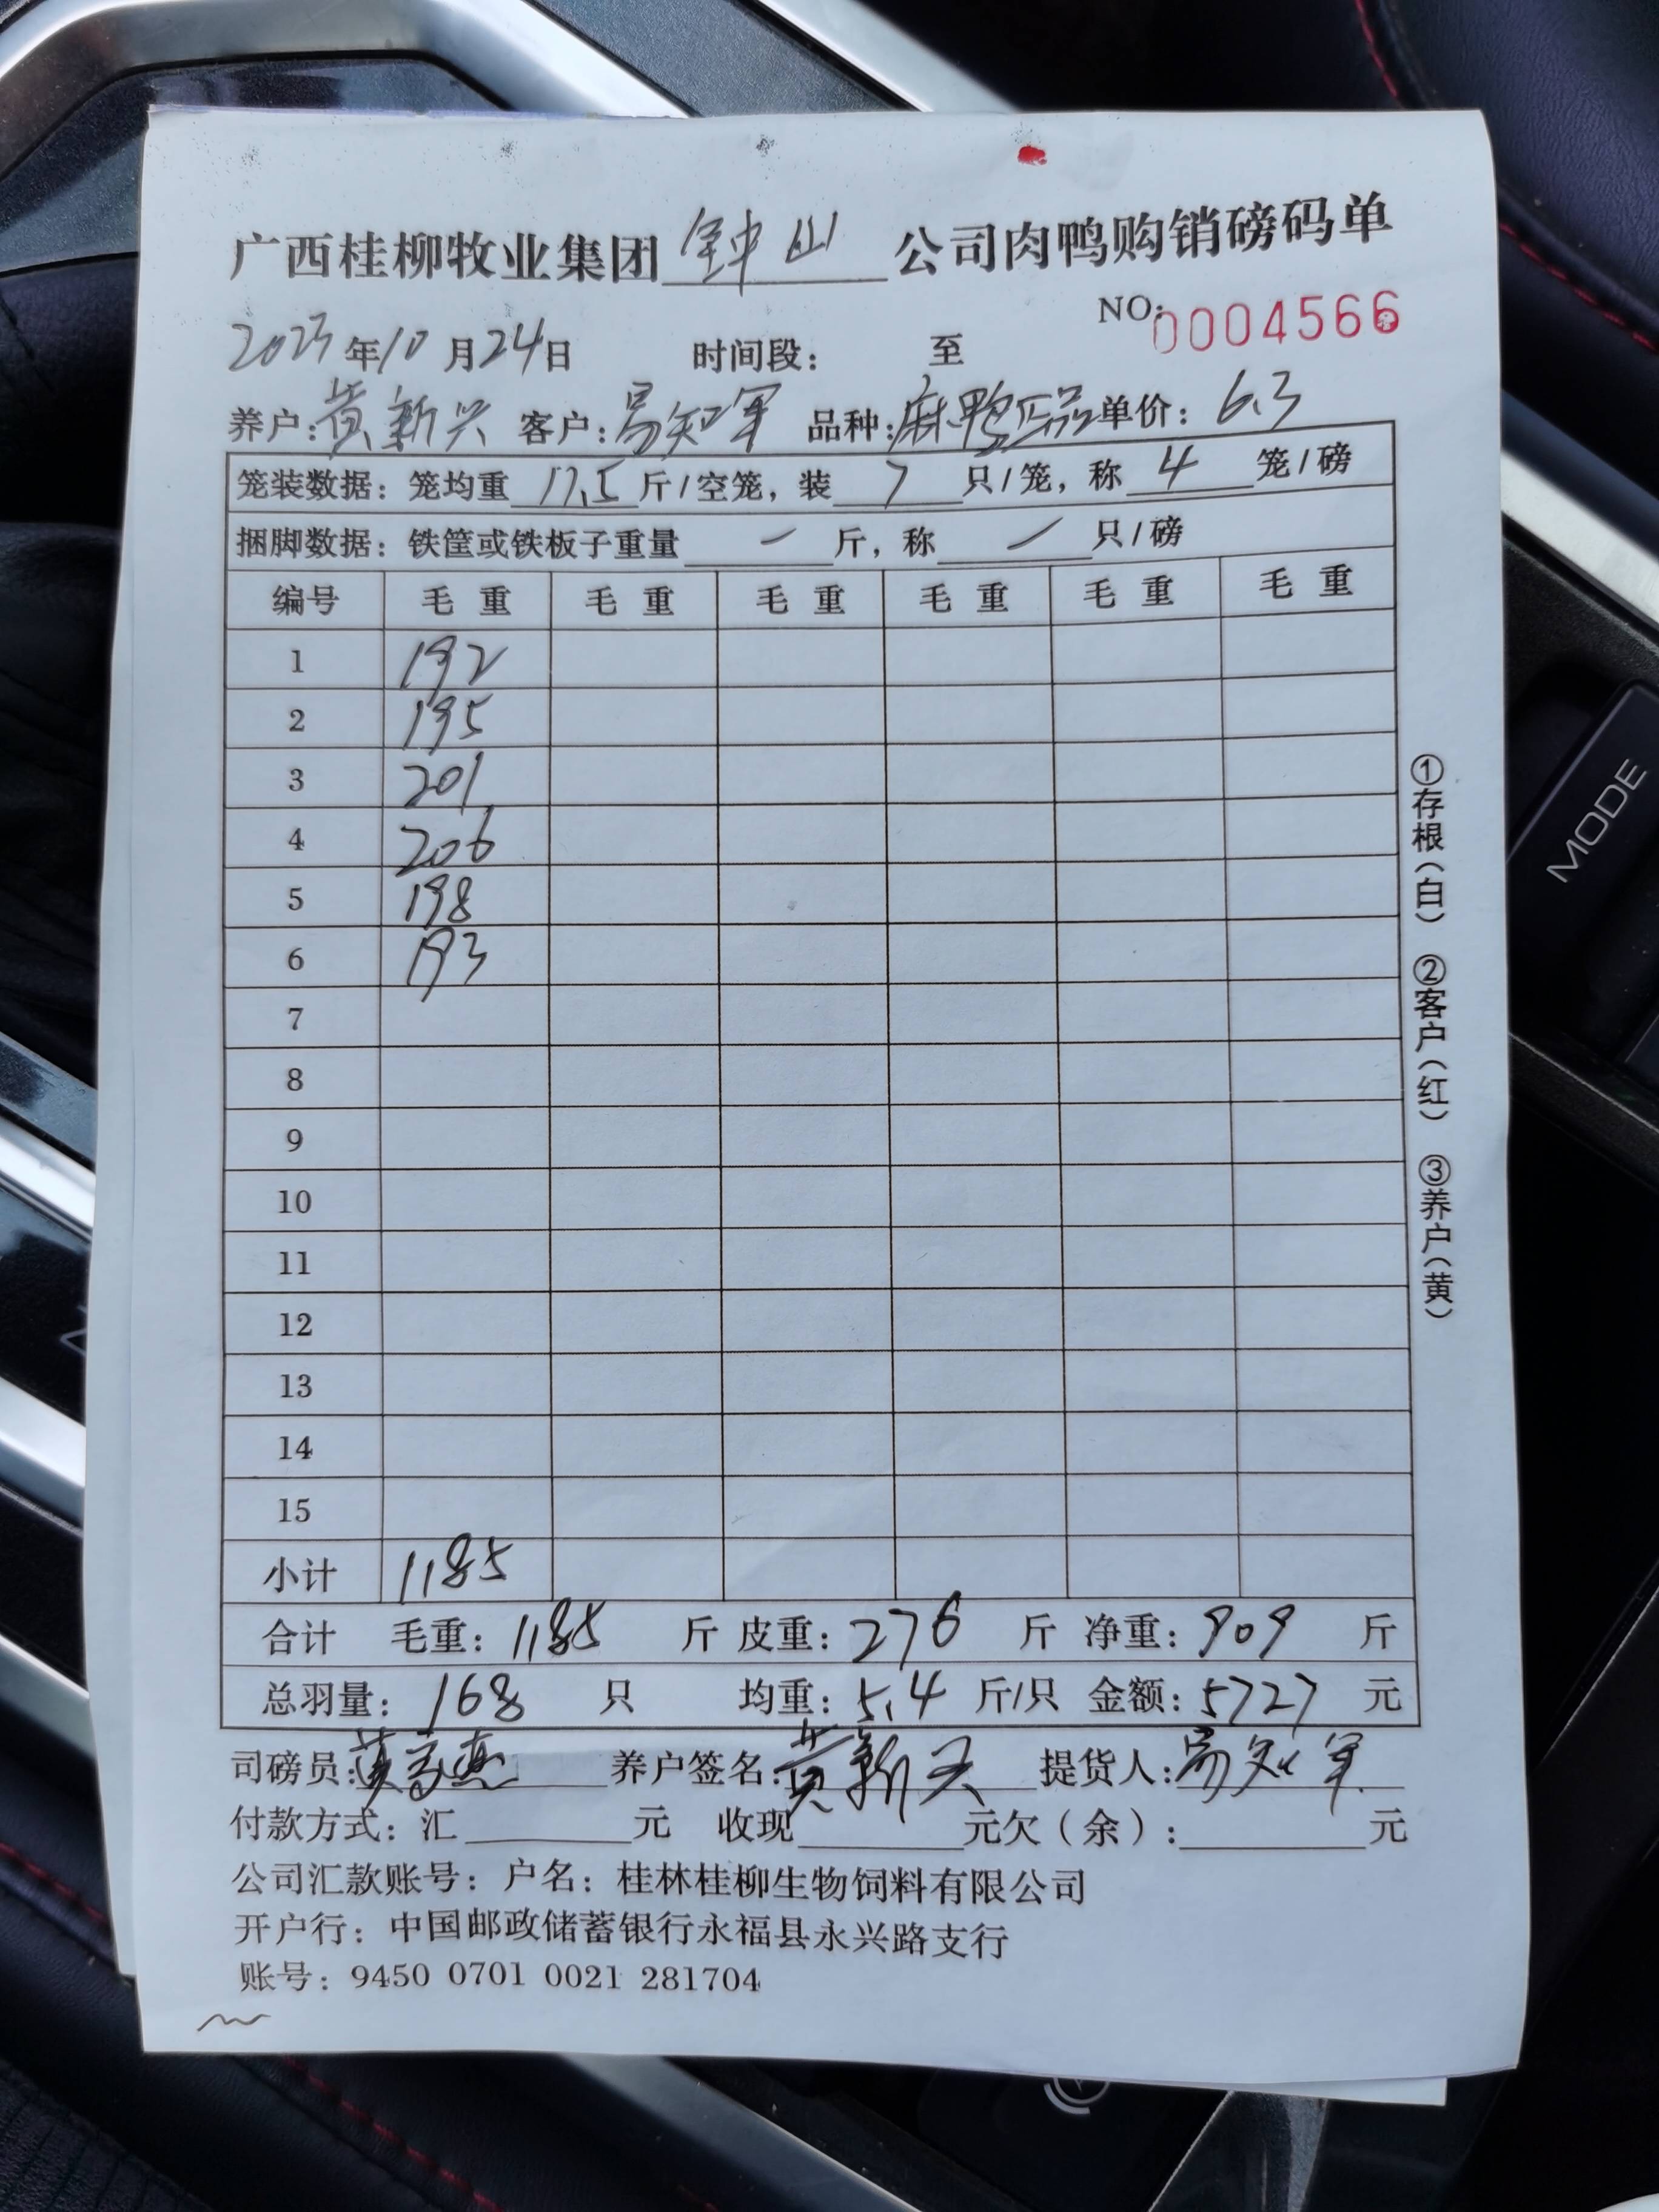 广西桂柳牧业集团钟山公司肉鸭购销磅码单
NO:0004566
2023年10月24日 时间段: 至
养户:黄新兴 客户:易知军 品种:麻鸭正品 单价:6.3
笼装数据:笼均重 斤/空笼,装7只/笼,称4笼/磅
捆脚数据:铁筐或铁板子重量 — 斤,称 — 只/磅
编号 毛重 毛重 毛重 毛重 毛重 毛重
1 192
2 195
3 201
4 206
5 198
6 193
7
8
9
10
11
12
13
14
15
小计 1185
合计 毛重:1185 斤 皮重:276 斤 净重:909 斤
总羽量:168 只 均重:5.4 斤/只 金额:5727 元
司磅员: 养户签名:黄新兴 提货人:易知军
付款方式:汇 元 收现 元欠(余): 元
公司汇款账号:户名:桂林桂柳生物饲料有限公司
开户行:中国邮政储蓄银行永福县永兴路支行
账号:9450 0701 0021 281704
①存根(白) ②客户(红) ③养户(黄)
MODE